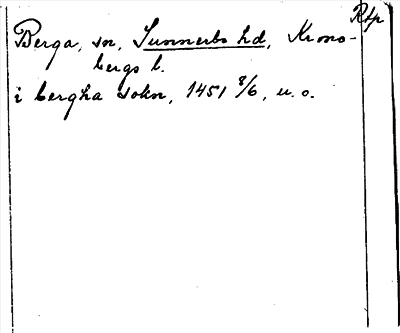 Rtp
Berga, sn, Sunnerbo hd, Krono-
bergs l.
i bergha sokn, 1451 8/6, u. o.